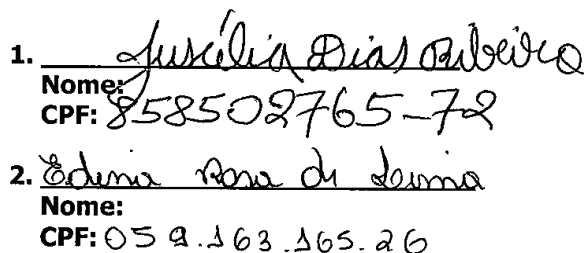 1. Juscélia Dias Ribeiro
Nome:
CPF: 858502765-72
2. Edina Rosa de Lima
Nome:
CPF: 059.163.165.26